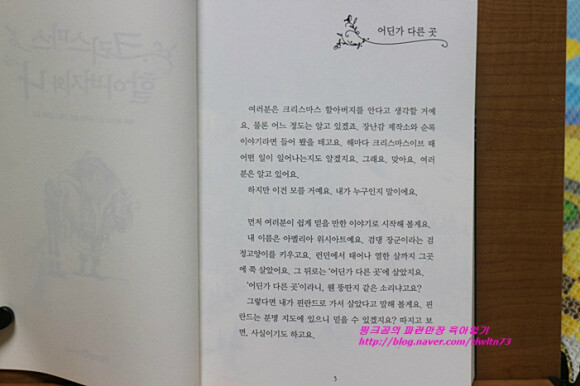 어딘가 다른 곳
여러분은 크리스마스 할아버지를 안다고 생각할 거예
요. 물론 어느 정도는 알고 있겠죠. 장난감 제작소와 순록
이야기라면 들어 봤을 테고요. 해마다 크리스마스이브 때
어떤 일이 일어나는지도 알겠지요. 그래요, 맞아요. 여러
분은 알고 있어요.
하지만 이건 모를 거예요. 내가 누구인지 말이에요.
먼저 여러분이 쉽게 믿을 만한 이야기로 시작해 볼게요.
내 이름은 아멜리아 위시아트예요. 검댕 장군이라는 검
정고양이를 키우고요. 런던에서 태어나 열한 살까지 그곳
에 쭉 살았어요. 그 뒤로는 ‘어딘가 다른 곳’에 살았지요.
‘어딘가 다른 곳’이라니, 웬 뚱딴지 같은 소리냐고요?
그렇다면 내가 핀란드로 가서 살았다고 말해 볼게요. 핀
란드는 분명 지도에 있으니 믿을 수 있겠지요? 따지고 보
면, 사실이기도 하고요.
5
크리스마스
할아버지와 나
핑크곰의 파란만장 육아일기
http://blog.naver.com/dwltn73